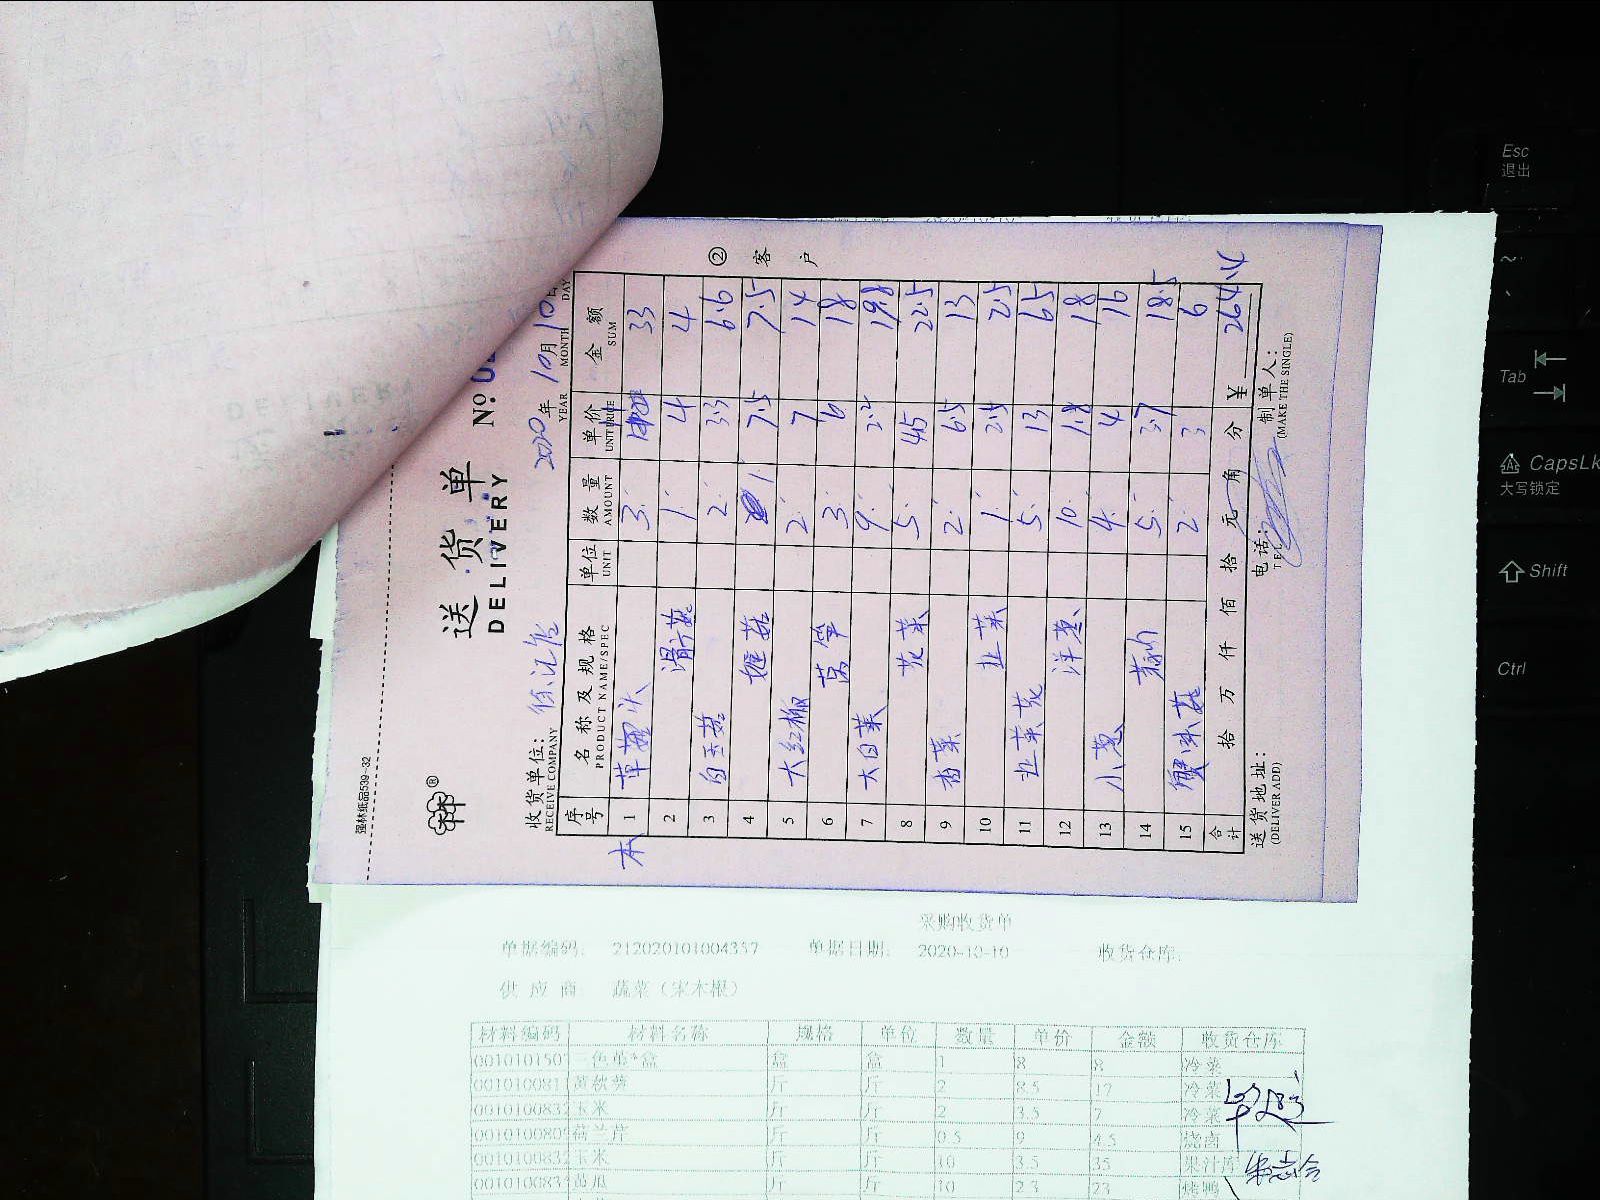 强林纸品539-32
送货单
DELIVERY
№ 0
收货单位: 徐记 2020年 10月 10日
RECEIVE COMPANY YEAR MONTH DAY
序号 名称及规格 单位 数量 单价 金额
PRODUCT NAME/SPEC UNIT AMOUNT UNIT PRICE SUM
本 1 草菇头 3. 33
2 滑菇 1. 4 4
3 白玉菇 2. 3.3 6.6
4 菇 1. 7.5 7.5
5 大红椒 2. 7 14
6 莴笋 3. 6 18
7 大白菜 9. 2.2 19.8
8 花菜 5. 4.5 22.5
9 香菜 2. 6.5 13
10 韭菜 1. 2.5 2.5
11 韭菜花 5. 13 65
12 洋葱 10. 1.8 18
13 小葱 4. 4 16
14 5. 3.7 18.5
15 蟹味菇 2. 3 6
合计 拾 万 仟 佰 拾 元 角 分 ¥ 264.4
送货地址: 电话: 制单人:
(DELIVER ADD) TEL (MAKE THE SINGLE)
② 客户
采购收货单
单据编码: 212020101004337 单据日期: 2020-10-10 收货仓库:
供应商: 蔬菜(宋木根)
材料编码 材料名称 规格 单位 数量 单价 金额 收货仓库
0010101507 三色堇*盒 盒 盒 1 8 8 冷菜
001010081 黄秋葵 斤 斤 2 8.5 17 冷菜
0010100832 玉米 斤 斤 2 3.5 7 冷菜
0010100809 荷兰芹 斤 斤 0.5 9 4.5 烧卤
0010100832 玉米 斤 斤 10 3.5 35 果汁库
001010083 黄瓜 斤 斤 10 2.3 23 烤鸭
Esc
退出
~
Tab
CapsLk
大写锁定
Shift
Ctrl